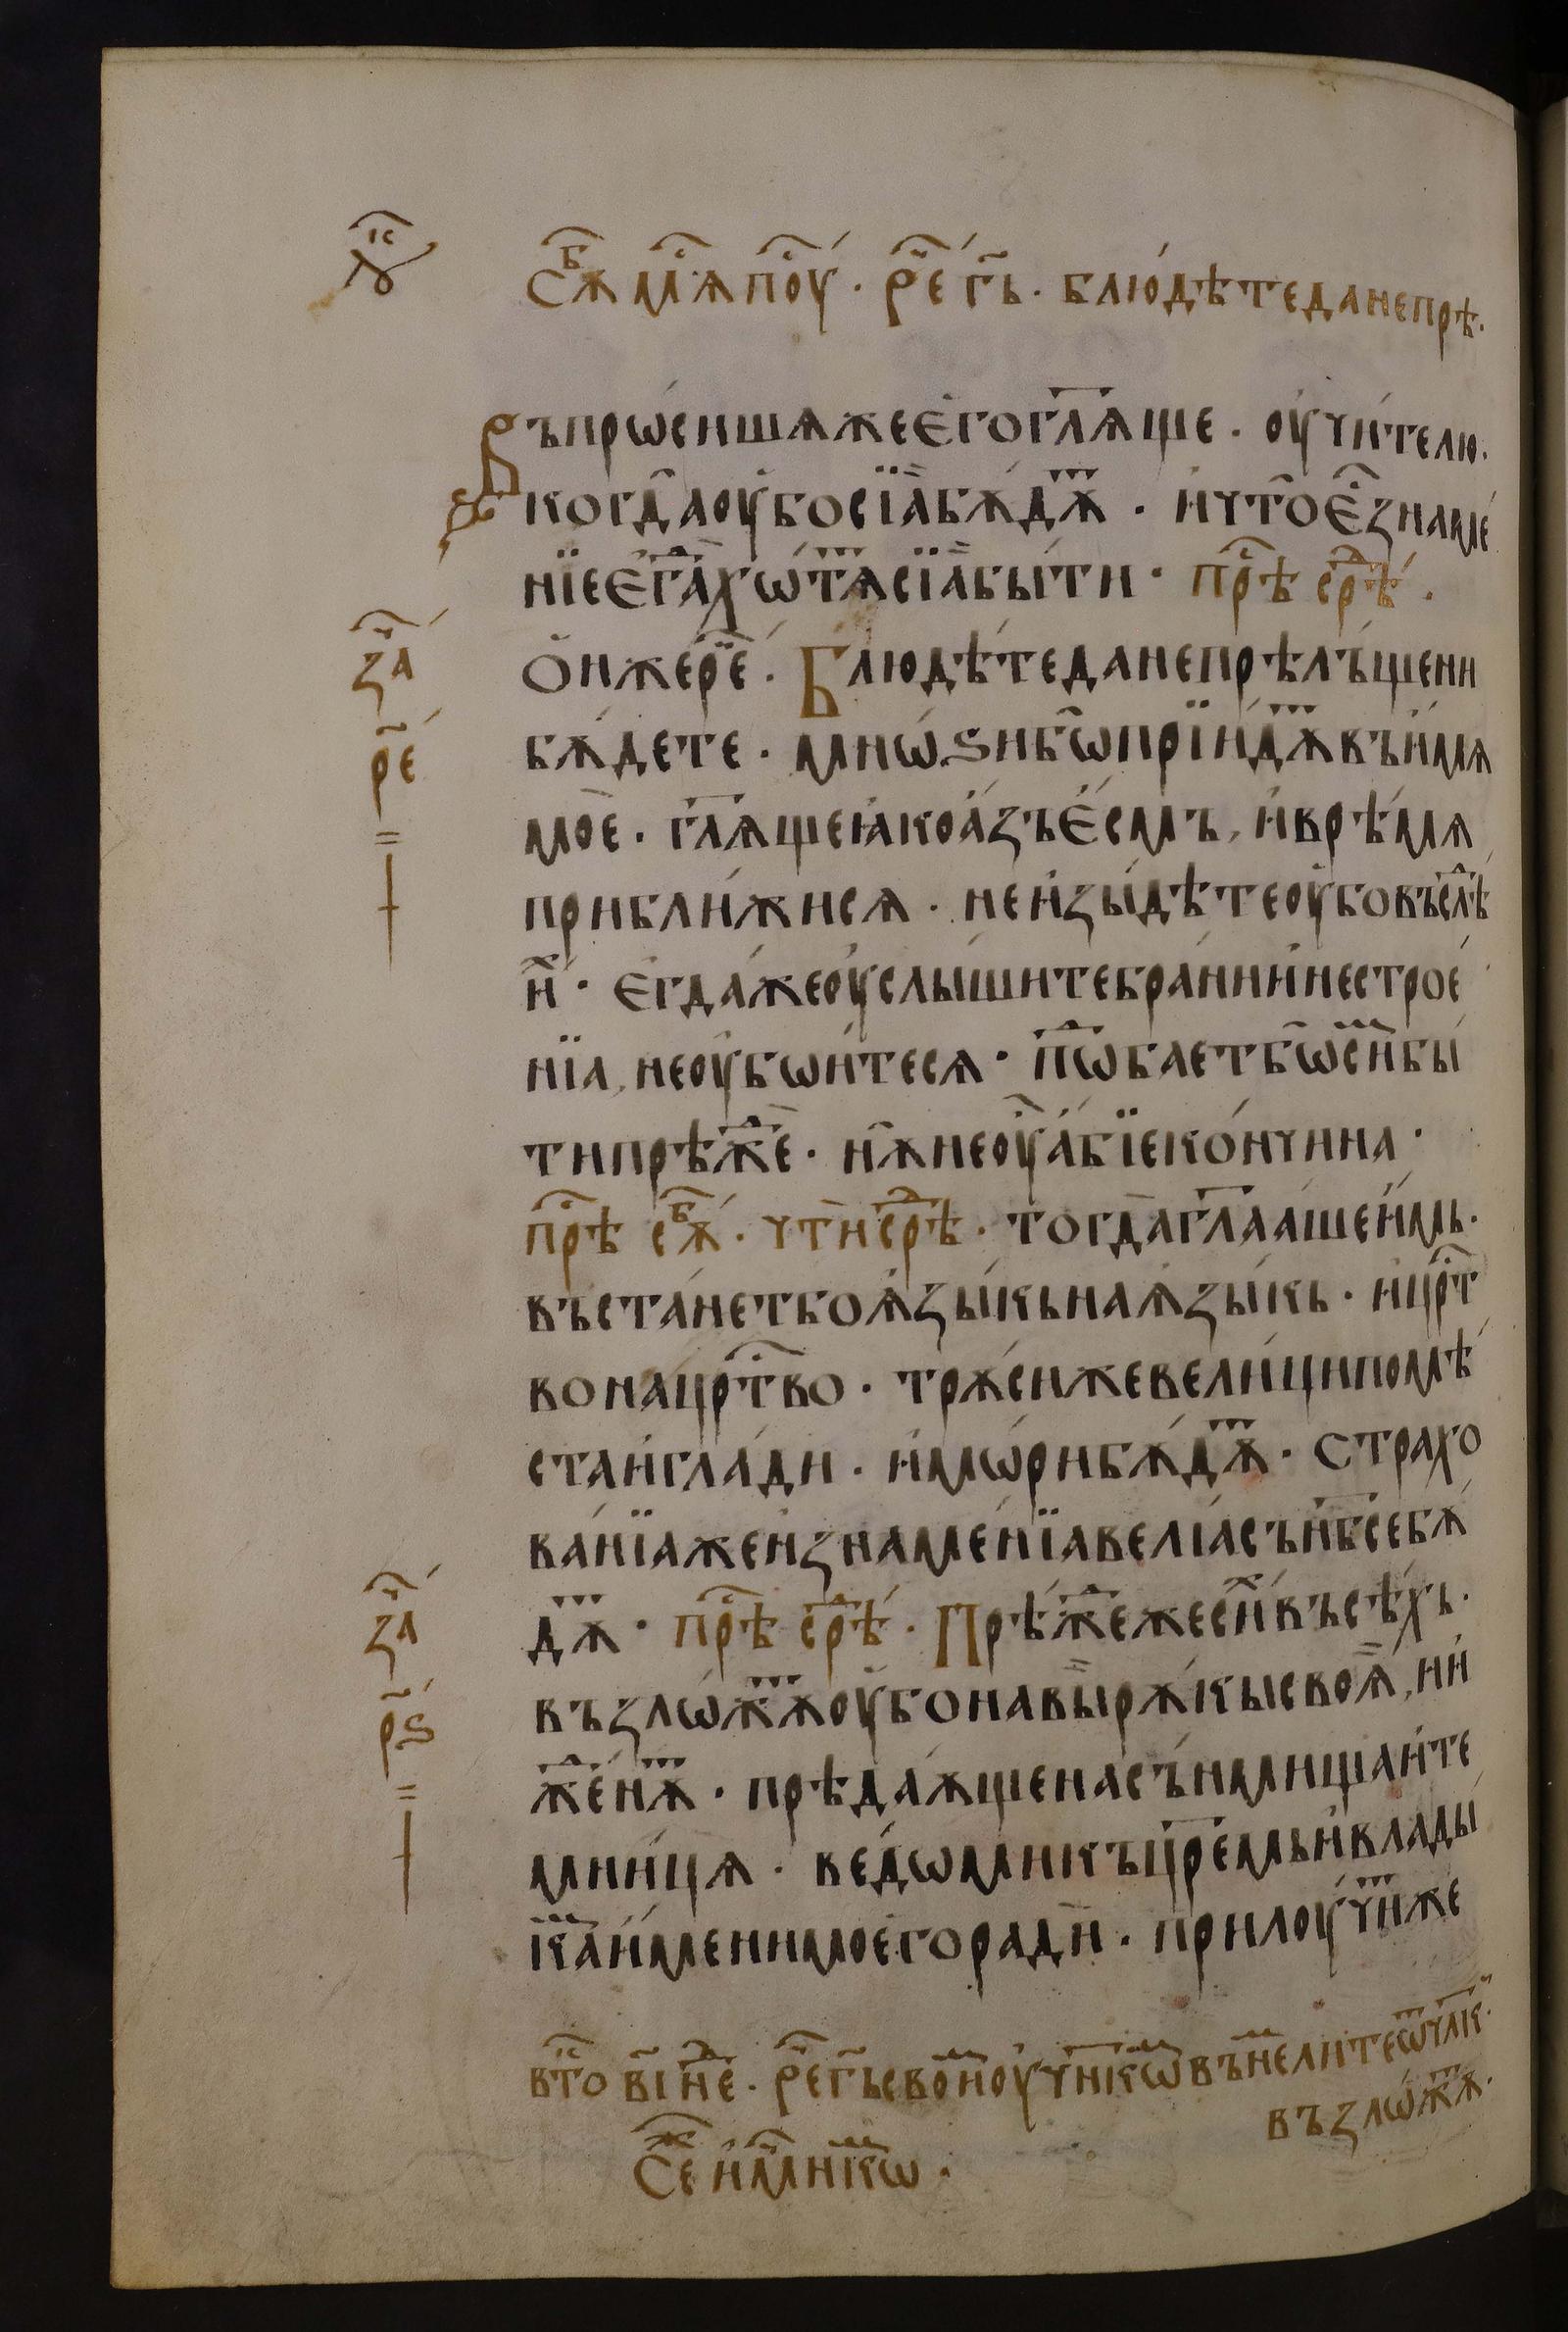 сѫⷠ҇ мⷭ҇ѧ поⷭ҇у҄ . рⷱ҇е г҃ь . блюдѣ́те да не прѣ .
Въпрѡси́шѧ же є҆го гл҃ѧще . оу҆чи́телю .
когда̀ оу҆бо сїа̀ бѫ́дѫⷮ . и҆ что̀ є҆ⷭ҇ знаме́
нїе є҆гдⷶ҇а хѡ́тѧⷮ сїа̀ бы́ти . прⷭ҇ѣ срⷣѣ .
О҆н же рⷱ҇е . Блюдѣ́те да не прѣлъ́щени
бѫ́дете . мнѡ́ѕи бѡ прїи́дѫⷮ въ и҆́мѧ
моѐ . гл҃ѧще ꙗ҆ко а҆́зъ є҆́смъ , и҆ врѣ́мѧ
прибли́жисѧ . не и҆зы́дѣте оу҆бо въслⷣѣ
иⷯ . є҆гда́ же оу҆слы́шите бра́ни и҆ нестрое́
нїа , не оу҆бѡи́тесѧ . пⷣѡбает бѡ сиⷨ бы́
ти прѣжⷣе . нѫ̀ не оу҆̀ а҆́бїе кон́чина .
прⷭ҇ѣ сѫⷠ҇ . чтⷩ҇и срⷣѣ . тогда̀ гл҃ааше и҆́мь .
въста́нет бо ѧ҆зы́кь на ѧ҆зы́кь . и҆ црⷭ҇т
во на црⷭ҇тво . трѫ́си же вели́ци по мѣ́
ста и҆ гла́ди . и҆ мѡ́ри бѫ́дѫⷮ . Страхо
ва́нїа же и҆ знаме́нїа веліа съ нб҃се бѫ́
дѫⷮ . прⷭ҇ѣ срⷣѣ . Прѣ́жⷣе же сиⷯ въсѣ́хь .
възлѡ́жѫⷮ оу҆бо на вы̀ рѫ́кы своѧ̀ , и҆ и
жⷣенѫⷮ . прѣдаѫ́ще на съ́нмища и҆ те
мни́цѧ . ведѡ́ми къ цр҃емь и҆ влады́
каⷨ и҆мени моего радѝ . прилоу́читⷤже
вⷭ҇то в҃і нⷣе . рⷱ҇е г҃ь своиⷨ оу҆чн҃ікѡⷨ вънемлите ѿ члк҃ь .
възлѡ́жѫⷮ .
Сеⷤ и҆ мⷱ҇нікѡⷨ .
за
р҃е
=
за
рѕ
=